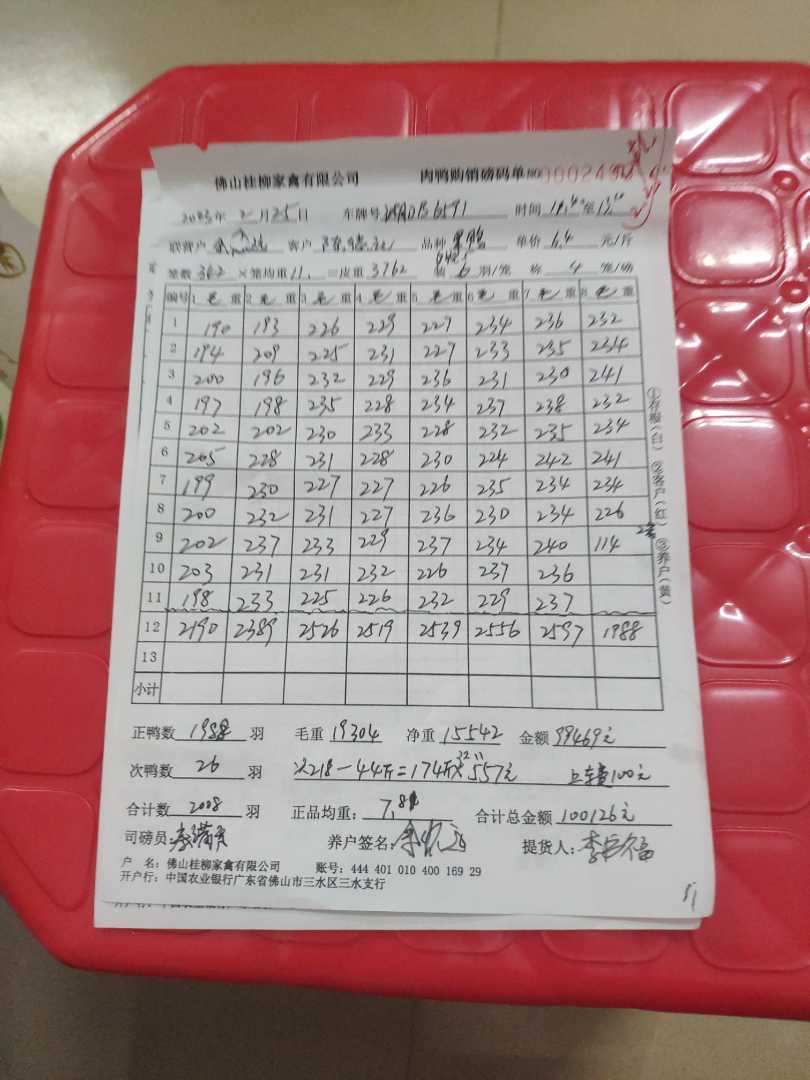 佛山桂柳家禽有限公司 肉鸭购销磅码单 NO
2023年 2月25日 车牌号 B6591 时间 至
联营户 客户 品种 单价 6.4 元/斤
笼数 342 ×笼均重 11. =皮重 3762 装 6 羽/笼 称 4 笼/磅
编号 1 毛 重 2 毛 重 3 毛 重 4 毛 重 5 毛 重 6 毛 重 7 毛 重 8 毛 重
1 190 193 226 229 227 234 236 232
2 194 209 225 231 227 233 235 234
3 200 196 232 229 236 231 230 241
4 197 198 235 228 234 237 238 232
5 202 202 230 233 228 232 235 234
6 205 228 231 228 230 224 242 241
7 199 230 227 227 226 235 234 234
8 200 232 231 227 236 230 234 226
9 202 237 233 229 237 234 240 114
10 203 231 231 232 226 237 236
11 198 233 225 226 232 229 237
12 2190 2389 2526 2519 2539 2556 2597 1988
13
小计
①存根(白) ②客户(红) ③养户(黄)
正鸭数 1988 羽 毛重 19304 净重 15542 金额 99469元
次鸭数 26 羽 218-44斤=174斤× 557元 上车费100元
合计数 2008 羽 正品均重: 7.81 合计总金额 100126元
司磅员: 养户签名: 提货人:
户 名: 佛山桂柳家禽有限公司 账号: 444 401 010 400 169 29
开户行: 中国农业银行广东省佛山市三水区三水支行